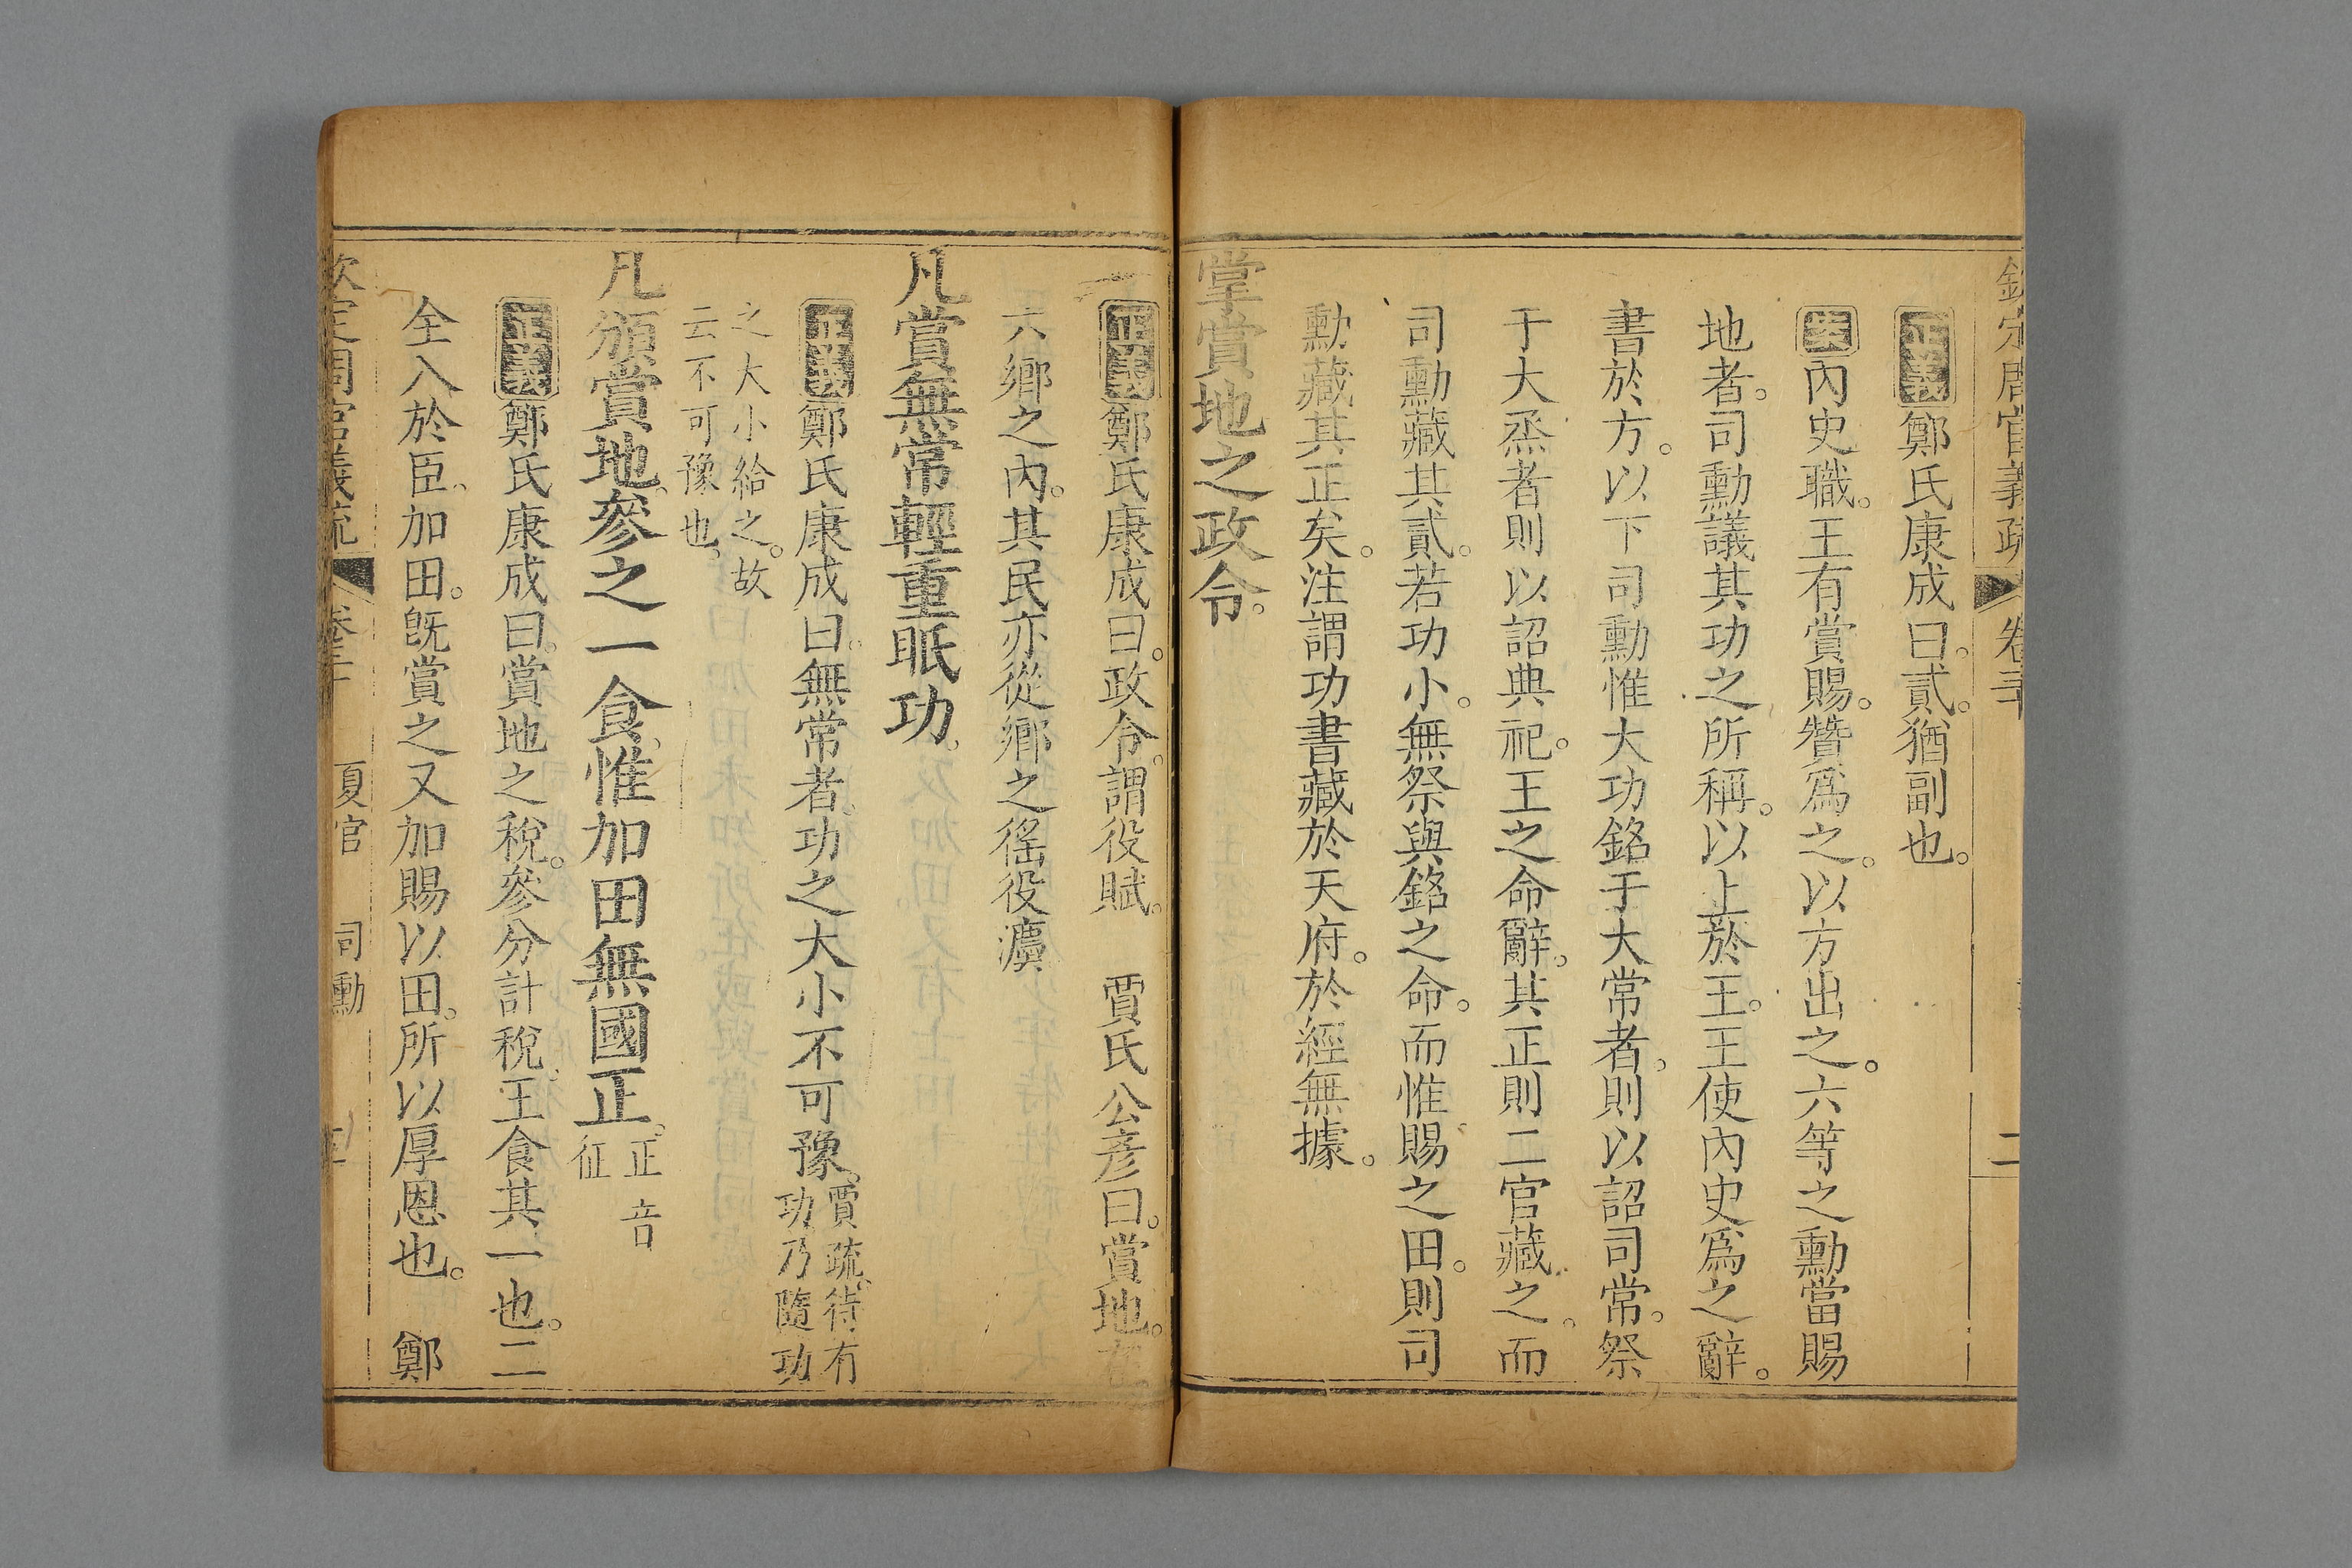 欽定周官義疏 卷三十 二
正義鄭氏康成曰。貳。猶副也。
案內史職。王有賞賜。贊爲之。以方出之。六等之勳當賜
地者。司勳議其功之所稱。以上於王。王使內史爲之辭。
書於方。以下司勳惟大功銘于大常者。則以詔司常。祭
于大烝者則以詔典祀。王之命辭。其正則二官藏之。而
司勳藏其貳。若功小。無祭與銘之命。而惟賜之田。則司
勳藏其正矣。注謂功書藏於天府。於經無據。
掌賞地之政令。
正義鄭氏康成曰。政令。謂役賦。 賈氏公彥曰。賞地。在
六鄉之內。其民亦從鄉之徭役灋
凡賞無常輕重眂功。
正義鄭氏康成曰。無常者。功之大小不可豫。賈疏。待有
功乃隨功
之大小給之。故
云不可豫也。
凡頒賞地。參之一食。惟加田無國正。正音
征
正義鄭氏康成曰。賞地之稅。參分計稅。王食其一也。二
全入於臣。加田。旣賞之又加賜以田。所以厚恩也。 鄭
欽定周官義疏 卷三十 夏官 司勳